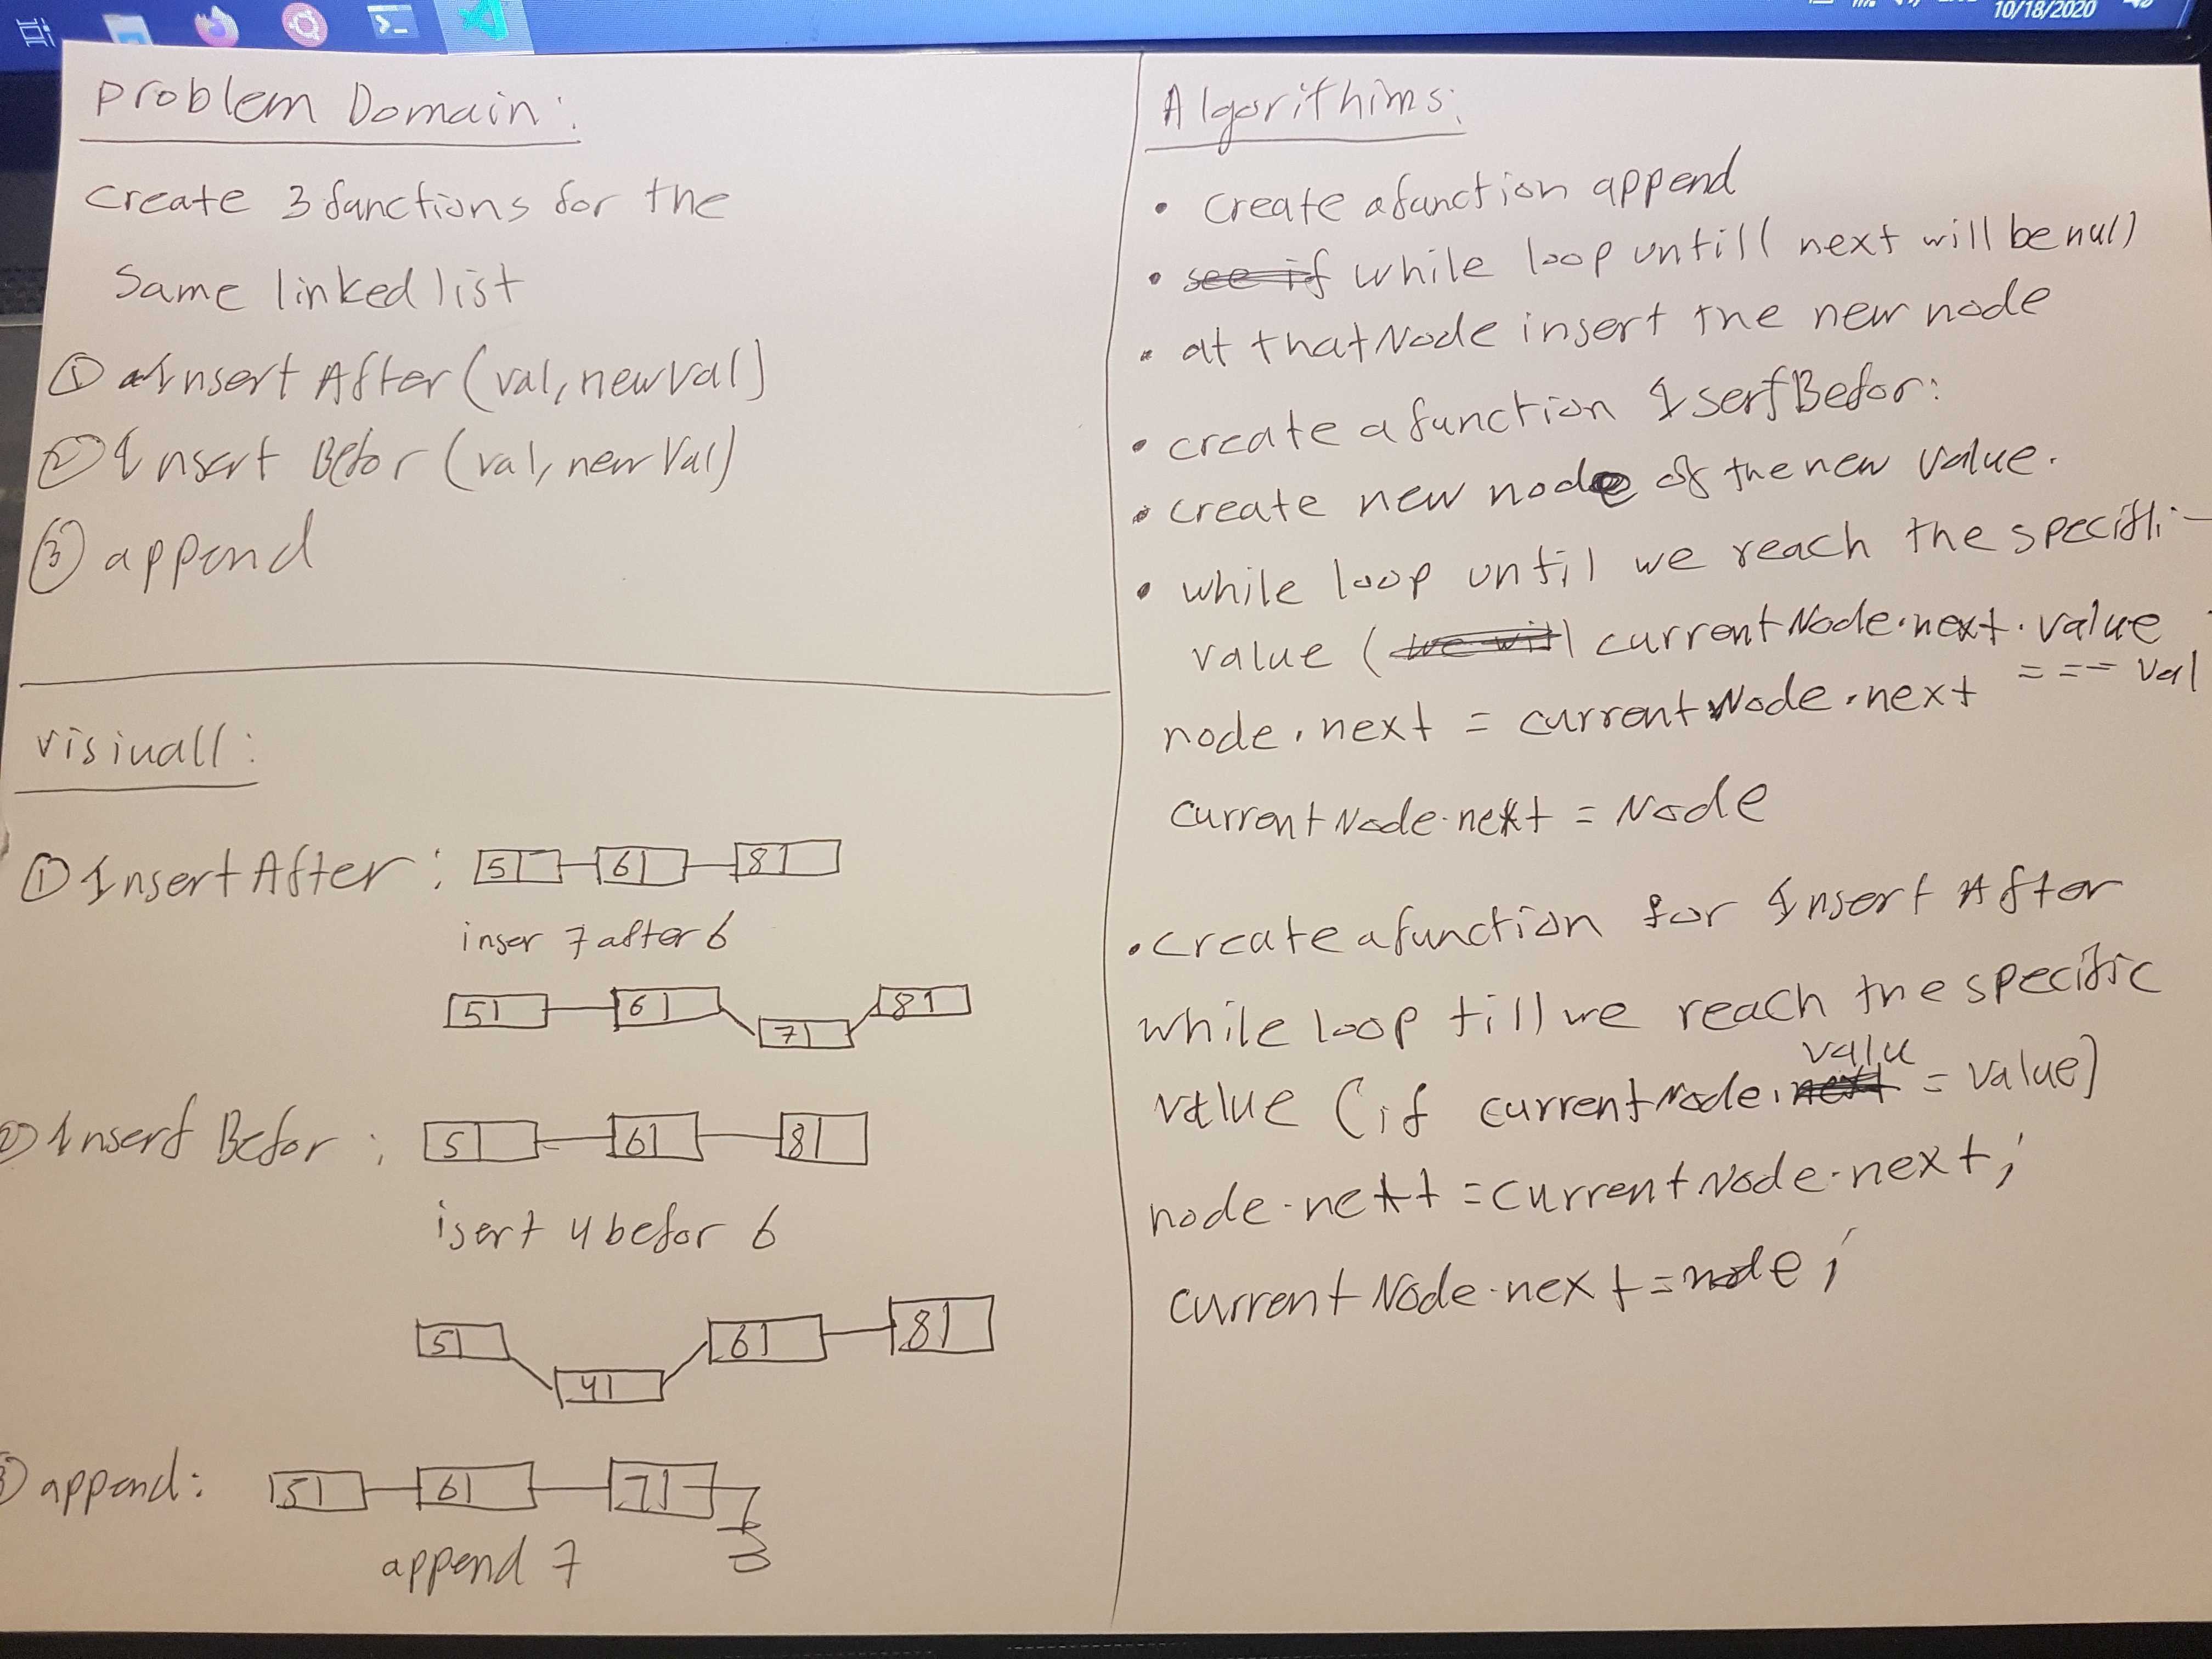 10/18/2020
Problem Domain:
create 3 functions for the
Same linked list
① Insert After (val, newval)
② Insert Befor (val, new Val)
③ append
visiuall:
① Insert After: 5 6 8
inser 7 after 6
5 6 7 8
② Insert Befor: 5 6 8
isert 4 befor 6
5 4 6 8
③ append: 5 6 7
append 7
Algorithims:
• create a function append
• see if while loop untill next will be null
• at that Node insert the new node
• create a function IserfBefor:
• create new node of the new value.
• while loop until we reach the specifi
value (we will currentNode.next.value
=== val
node.next = currentNode.next
currentNode.next = Node
• create a function for Insert After
while loop till we reach the specific
valu
value (if currentNode.next = value)
node.next = currentNode.next;
currentNode.next = node;